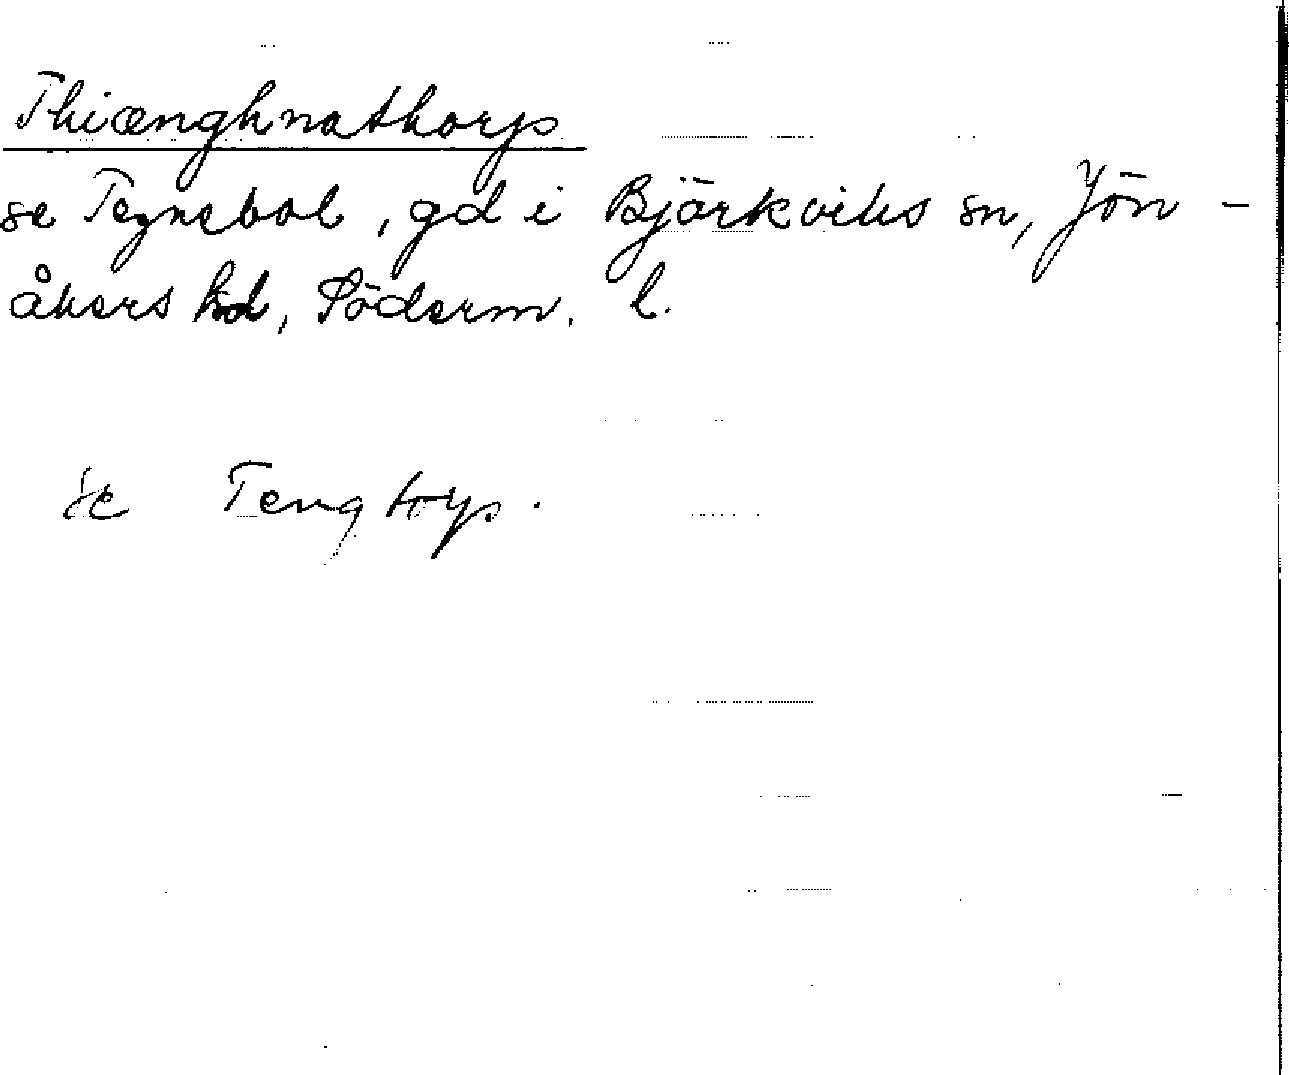 Thiænghnathorp
se Tegnebol, gd i Björkviks sn, Jön-
åkers hd, Söderm. l.
se Tengtorp.